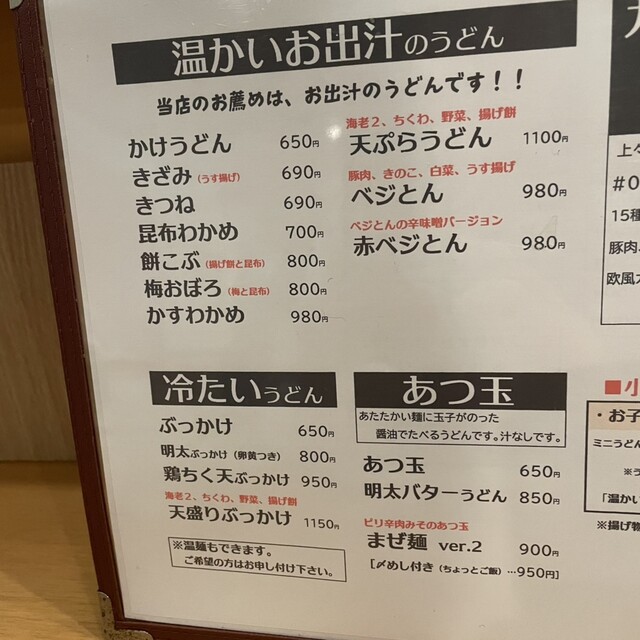 温かいお出汁のうどん
当店のお薦めは、お出汁のうどんです！！
かけうどん 650円
きざみ（うす揚げ） 690円
きつね 690円
昆布わかめ 700円
餅こぶ（揚げ餅と昆布） 800円
梅おぼろ（梅と昆布） 800円
かすわかめ 980円
海老２、ちくわ、野菜、揚げ餅
天ぷらうどん 1100円
豚肉、きのこ、白菜、うす揚げ
ベジとん 980円
ベジとんの辛味噌バージョン
赤ベジとん 980円
冷たいうどん
ぶっかけ 650円
明太ぶっかけ（卵黄つき） 800円
鶏ちく天ぶっかけ 950円
海老２、ちくわ、野菜、揚げ餅
天盛りぶっかけ 1150円
※温麺もできます。
ご希望の方はお申し付け下さい。
あつ玉
あたたかい麺に玉子がのった
醤油でたべるうどんです。汁なしです。
あつ玉 650円
明太バターうどん 850円
ピリ辛肉みそのあつ玉
まぜ麺 ver.2 900円
［〆めし付き（ちょっとご飯）…950円］
上々
#0
15種
豚肉、
欧風カ
■小
・お子
ミニうどん
※う
「温かい
※揚げ物